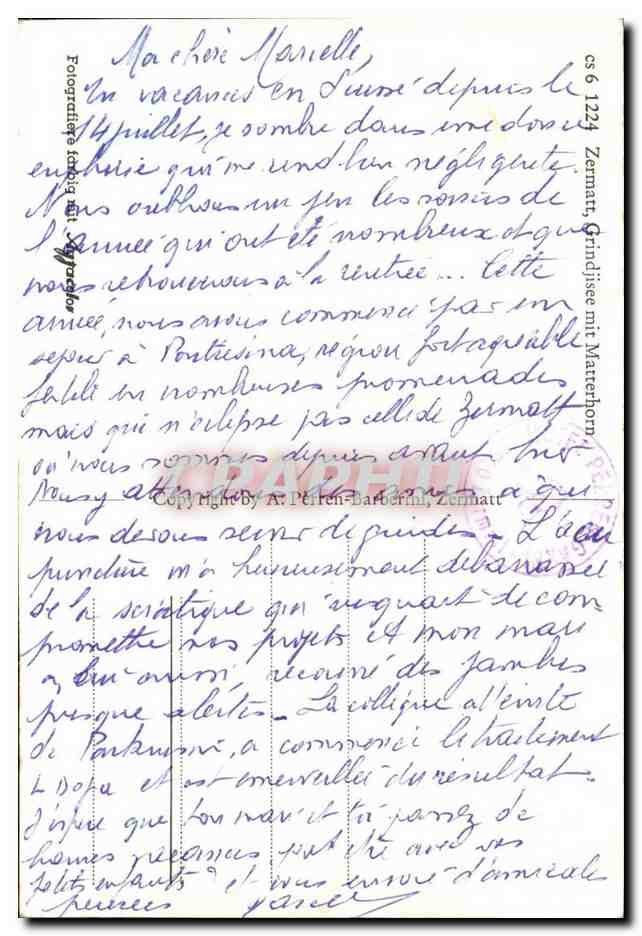 Ma chère Marcelle,
En vacances en Suisse depuis le
14 juillet, je sombre dans une douce
qui me rend bien négligente.
Nous oublions un peu les soucis de
l'année qui ont été nombreux et que
nous retrouverons à la rentrée... Cette
année, nous avons commencé par un
séjour à Pontresina, région fort agréable
fertile en nombreuses promenades
mais qui n'éclipse pas celle de Zermatt
où nous sommes depuis avant hier
Nous y attendons des amis à qui
nous devons servir de guides. L'acu
puncture m'a heureusement débarrassée
de la sciatique qui risquait de com-
promettre nos projets et mon mari
a, lui aussi, retrouvé des jambes
presque alertes. La collègue atteinte
de Parkinson, a commencé le traitement
L Dopa et est émerveillée du résultat.
J'espère que ton mari et toi passez de
bonnes vacances peut être avec vos
petits enfants ? et vous envoie d'amicales
pensées
cs 6 1224 Zermatt, Grindjisee mit Matterhorn
Fotografiert farbig mit Agfacolor
Copyright by A. Perren-Barberini, Zermatt
CPAPHIL